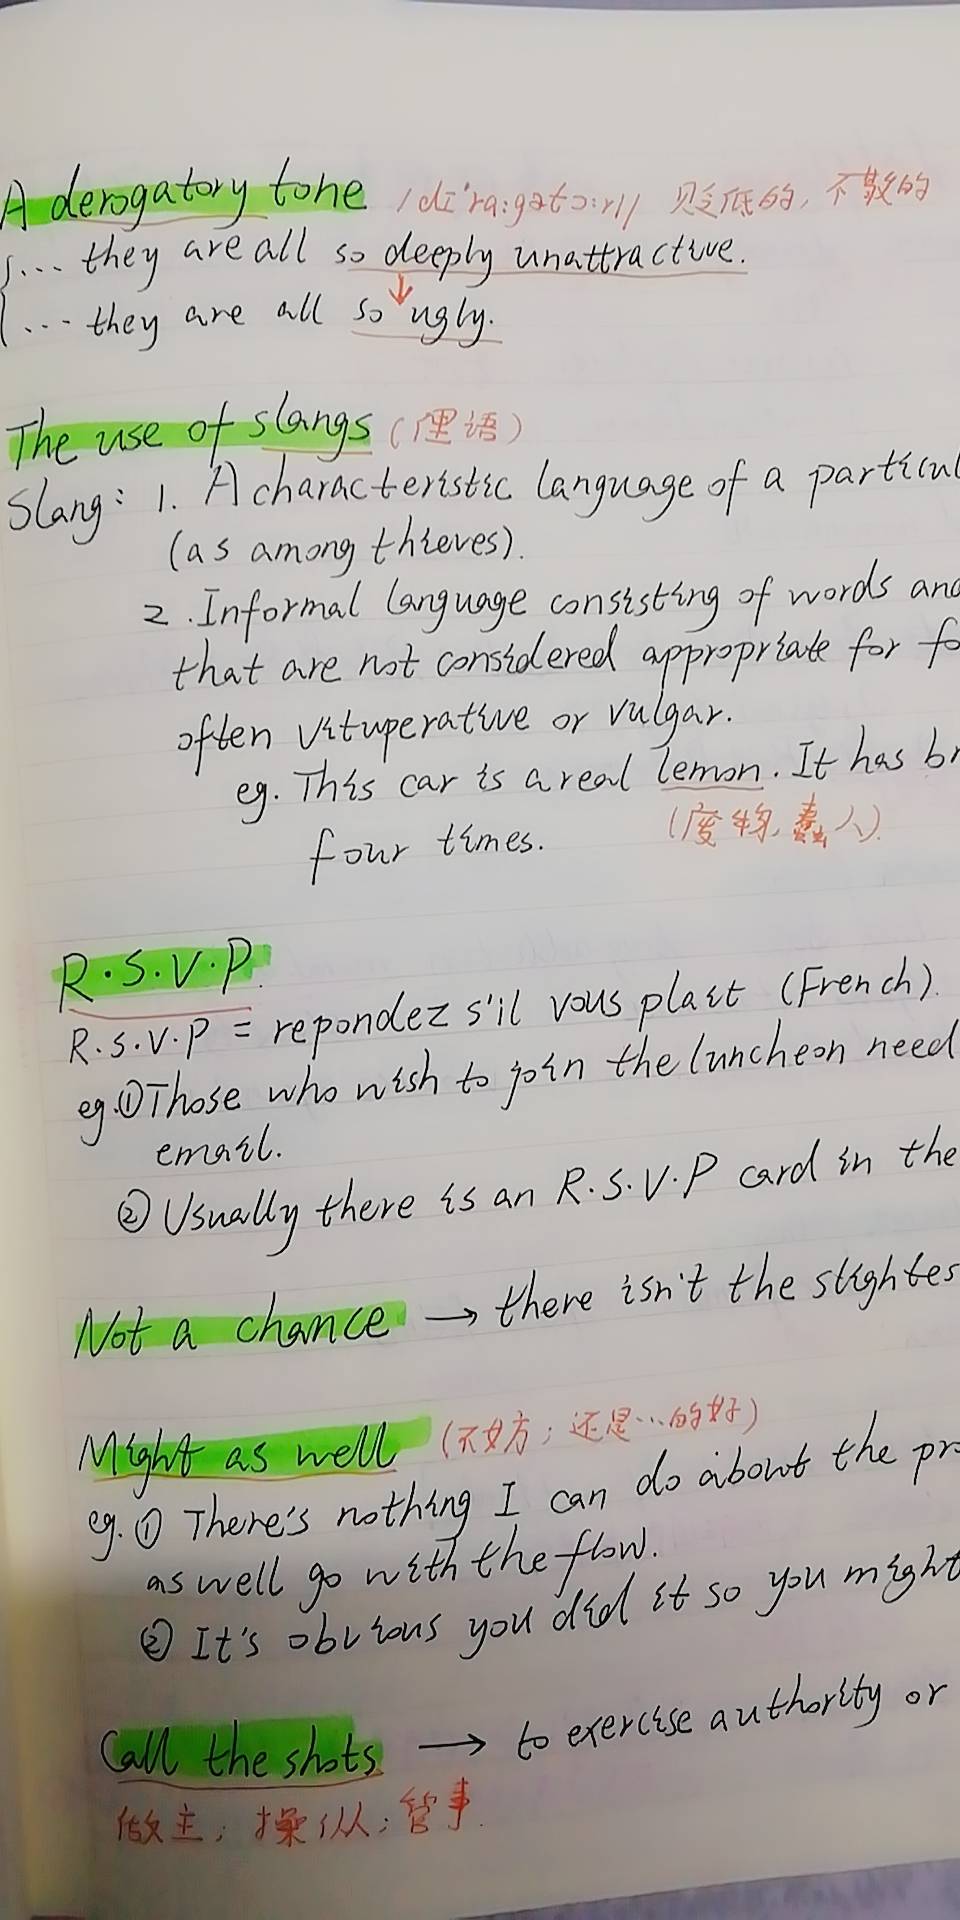 A derogatory tone /di'ra:gətɔ:ri/ 贬低的,不敬的
... they are all so deeply unattractive.
... they are all so ugly.
The use of slangs (俚语)
Slang: 1. A characteristic language of a particul
(as among thieves).
2. Informal language consisting of words and
that are not considered appropriate for fo
often vituperative or vulgar.
eg. This car is a real lemon. It has br
four times. (废物,蠢人)
R.S.V.P.
R.S.V.P = repondez s'il vous plait (French).
eg.①Those who wish to join the luncheon need
email.
②Usually there is an R.S.V.P card in the
Not a chance → there isn't the slightes
Might as well (不妨;还是…的好)
eg.① There's nothing I can do about the pr
as well go with the flow.
② It's obvious you did it so you might
Call the shots → to exercise authority or
做主;操纵;管事.